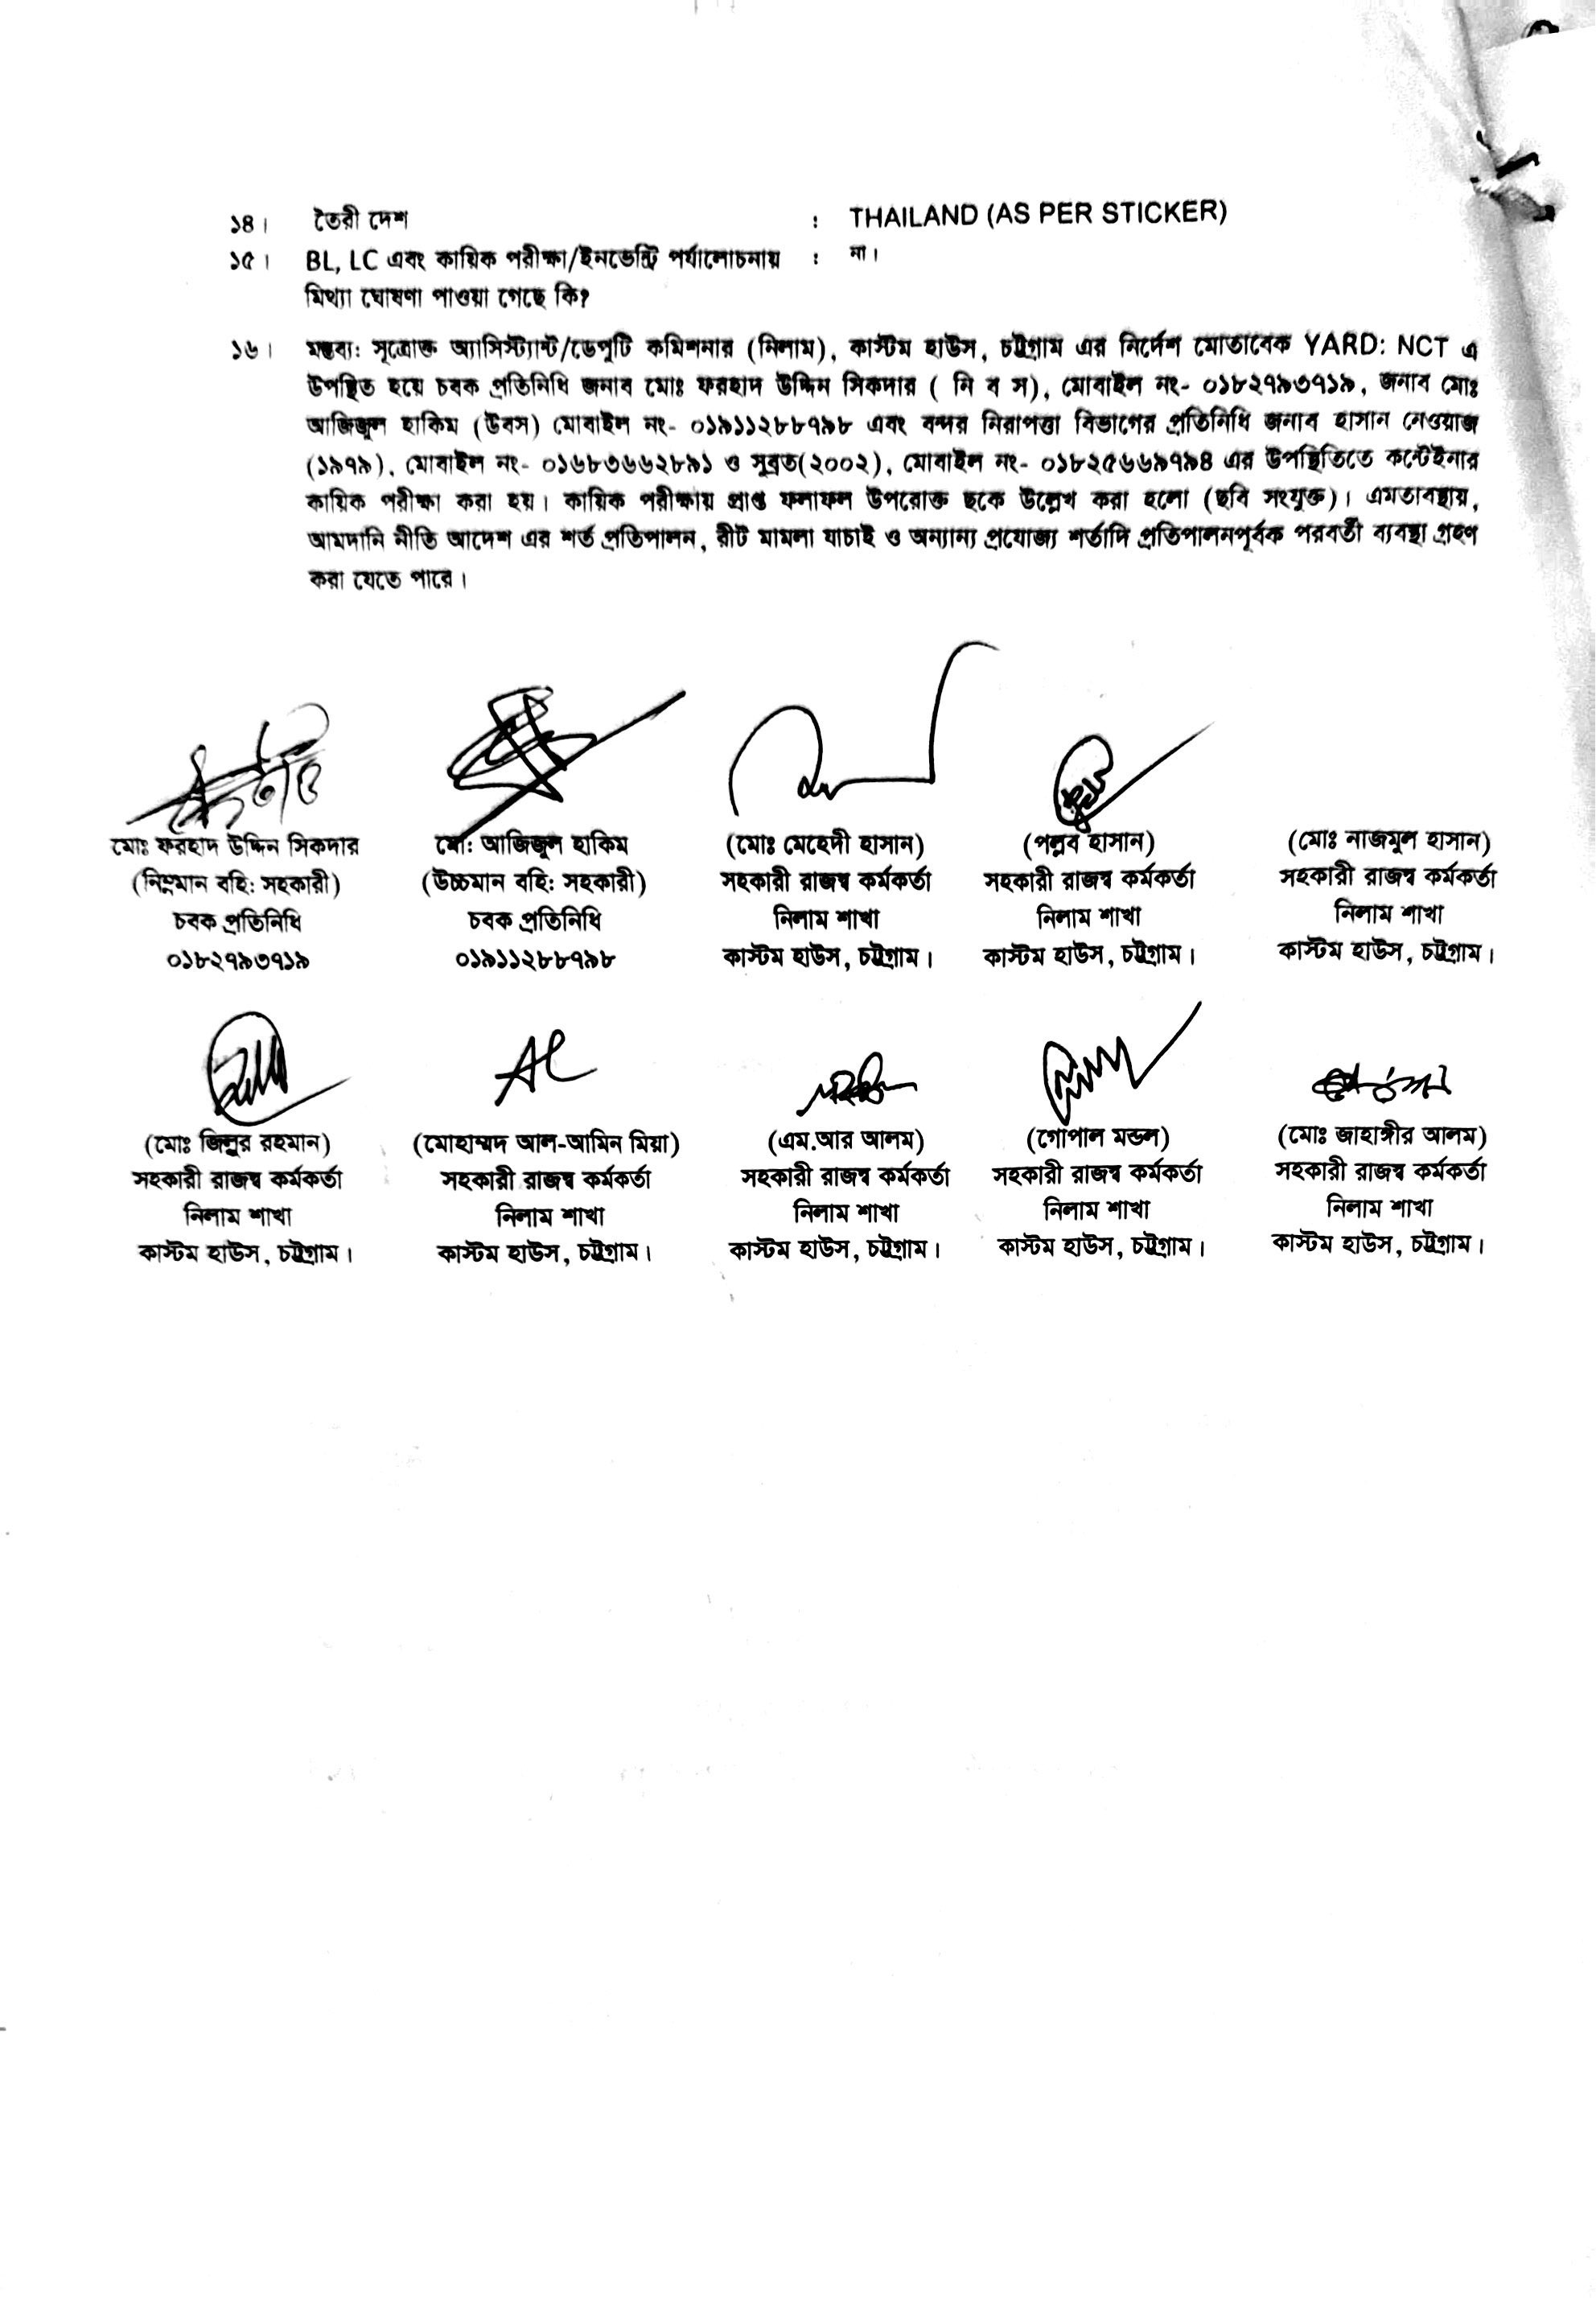 ১৪। তৈরী দেশ : THAILAND (AS PER STICKER)
১৫। BL, LC এবং কায়িক পরীক্ষা/ইনভেন্ট্রি পর্যালোচনায় : না।
মিথ্যা ঘোষণা পাওয়া গেছে কি?
১৬। মন্তব্য: সূত্রোক্ত অ্যাসিস্ট্যান্ট/ডেপুটি কমিশনার (নিলাম), কাস্টম হাউস, চট্টগ্রাম এর নির্দেশ মোতাবেক YARD: NCT এ
উপস্থিত হয়ে চবক প্রতিনিধি জনাব মোঃ ফরহাদ উদ্দিন সিকদার ( নি ব স), মোবাইল নং- ০১৮২৭৯৩৭১৯, জনাব মোঃ
আজিজুল হাকিম (উবস) মোবাইল নং- ০১৯১১২৮৮৭৯৮ এবং বন্দর নিরাপত্তা বিভাগের প্রতিনিধি জনাব হাসান নেওয়াজ
(১৯৭৯), মোবাইল নং- ০১৬৮৩৬৬২৮৯১ ও সুব্রত(২০০২), মোবাইল নং- ০১৮২৫৬৬৯৭৯৪ এর উপস্থিতিতে কন্টেইনার
কায়িক পরীক্ষা করা হয়। কায়িক পরীক্ষায় প্রাপ্ত ফলাফল উপরোক্ত ছকে উল্লেখ করা হলো (ছবি সংযুক্ত)। এমতাবস্থায়,
আমদানি নীতি আদেশ এর শর্ত প্রতিপালন, রীট মামলা যাচাই ও অন্যান্য প্রযোজ্য শর্তাদি প্রতিপালনপূর্বক পরবর্তী ব্যবস্থা গ্রহণ
করা যেতে পারে।
মোঃ ফরহাদ উদ্দিন সিকদার মো: আজিজুল হাকিম (মোঃ মেহেদী হাসান) (পল্লব হাসান) (মোঃ নাজমুল হাসান)
(নিম্নমান বহি: সহকারী) (উচ্চমান বহি: সহকারী) সহকারী রাজস্ব কর্মকর্তা সহকারী রাজস্ব কর্মকর্তা সহকারী রাজস্ব কর্মকর্তা
চবক প্রতিনিধি চবক প্রতিনিধি নিলাম শাখা নিলাম শাখা নিলাম শাখা
০১৮২৭৯৩৭১৯ ০১৯১১২৮৮৭৯৮ কাস্টম হাউস, চট্টগ্রাম। কাস্টম হাউস, চট্টগ্রাম। কাস্টম হাউস, চট্টগ্রাম।
(মোঃ জিলুর রহমান) (মোহাম্মদ আল-আমিন মিয়া) (এম.আর আলম) (গোপাল মন্ডল) (মোঃ জাহাঙ্গীর আলম)
সহকারী রাজস্ব কর্মকর্তা সহকারী রাজস্ব কর্মকর্তা সহকারী রাজস্ব কর্মকর্তা সহকারী রাজস্ব কর্মকর্তা সহকারী রাজস্ব কর্মকর্তা
নিলাম শাখা নিলাম শাখা নিলাম শাখা নিলাম শাখা নিলাম শাখা
কাস্টম হাউস, চট্টগ্রাম। কাস্টম হাউস, চট্টগ্রাম। কাস্টম হাউস, চট্টগ্রাম। কাস্টম হাউস, চট্টগ্রাম। কাস্টম হাউস, চট্টগ্রাম।